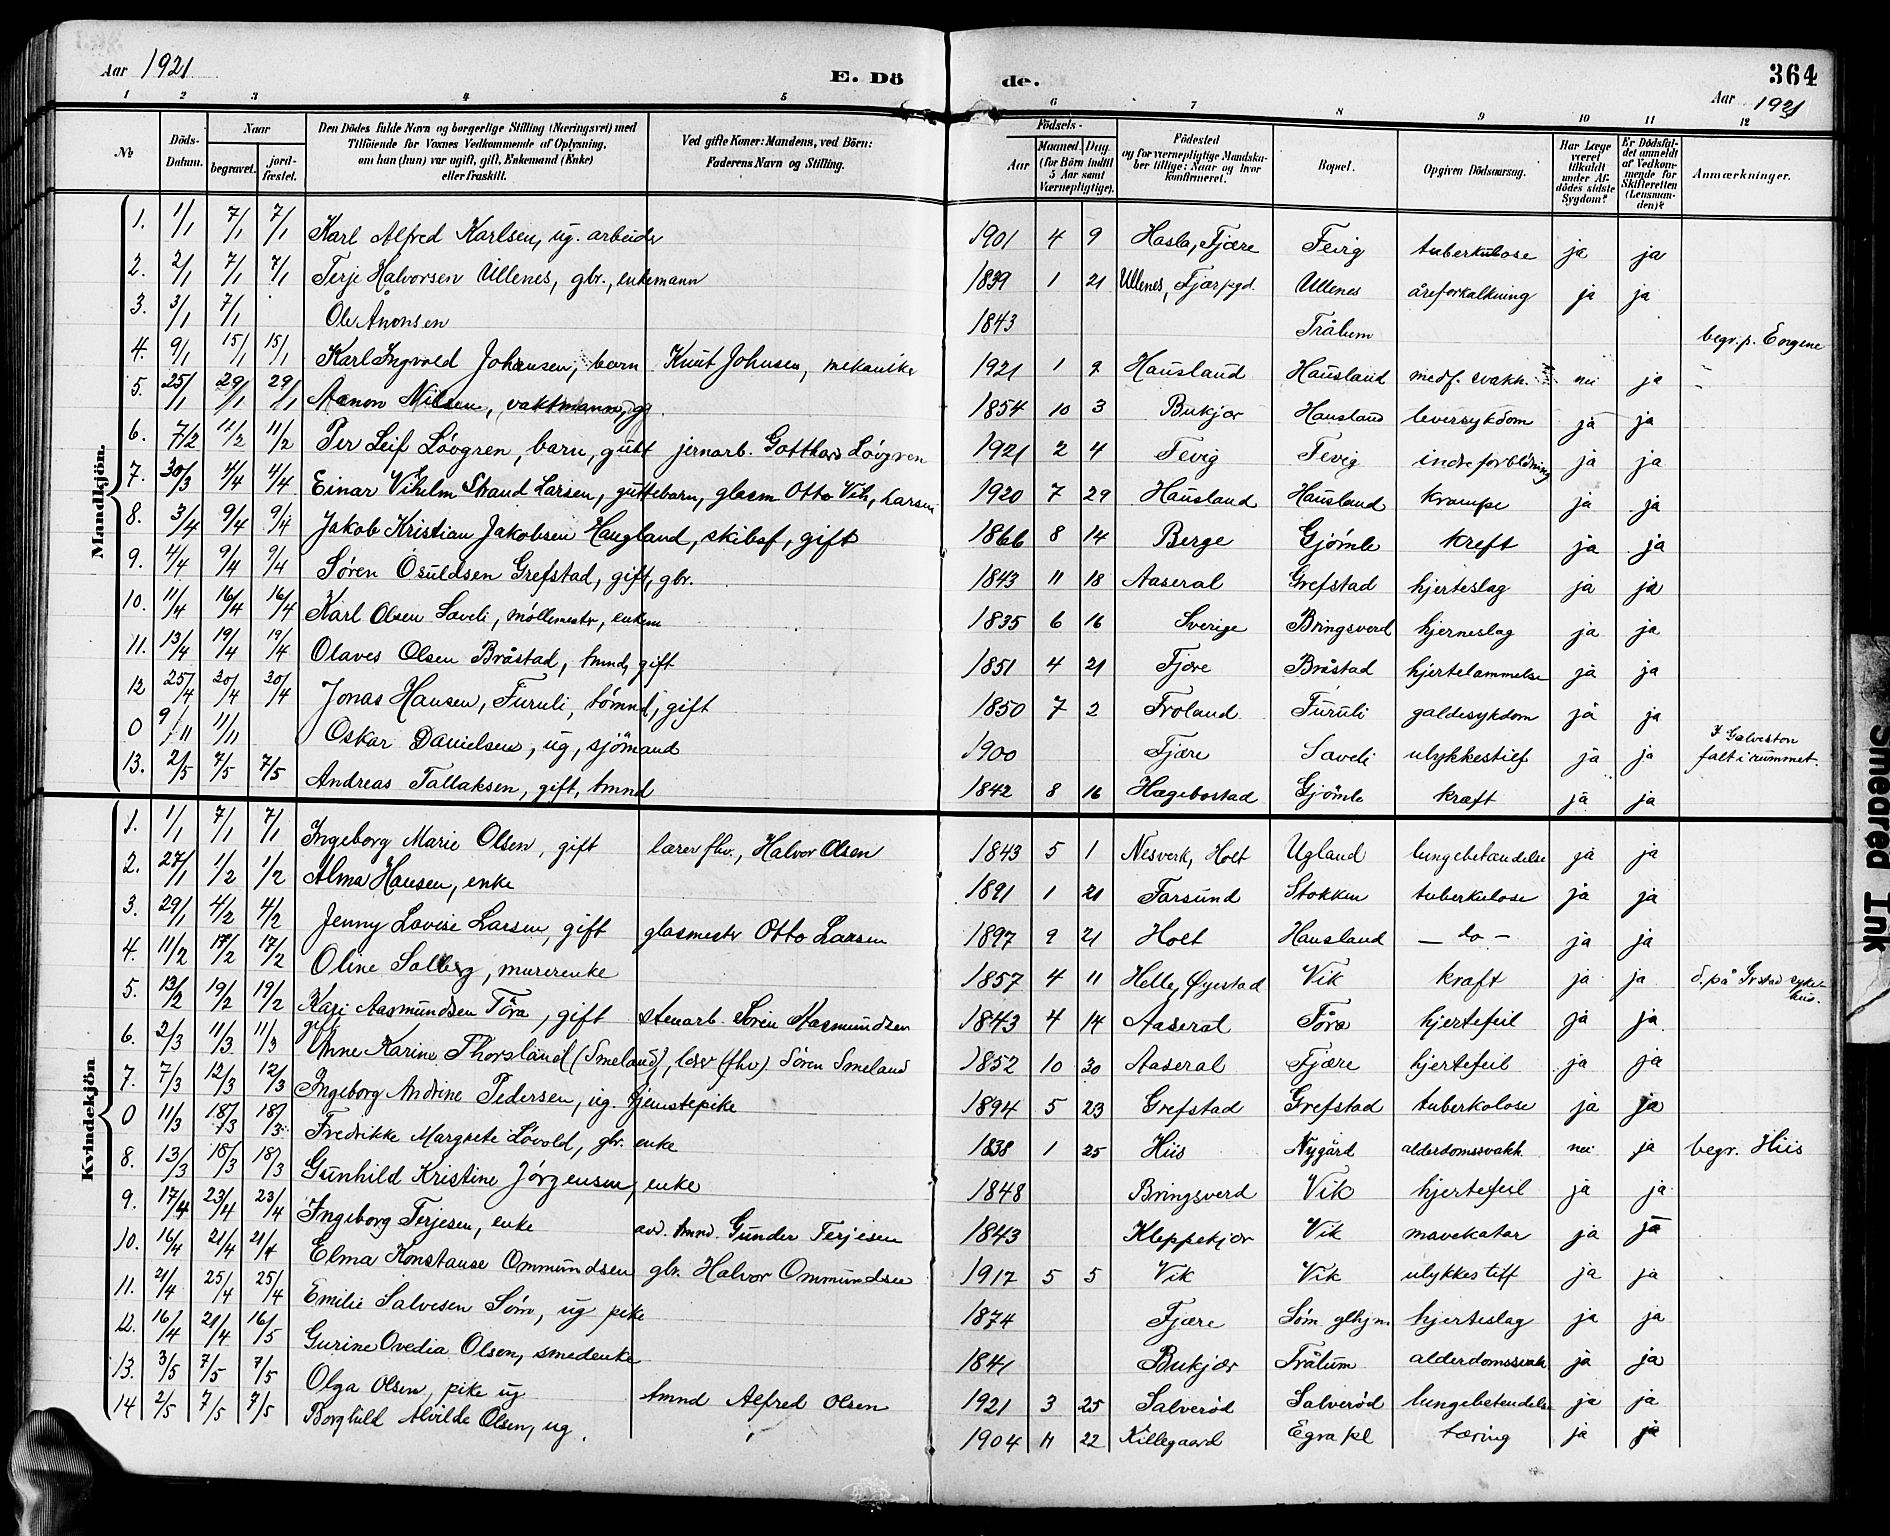 Aar 1921
E. Dö de.
364
Aar 1921
1 2 3 4 5 6 7 8 9 10 11 12
№ Döds-Datum. Naar begravet. jord-fæstet. Den Dödes fulde Navn og borgerlige Stilling (Næringsvei) med Tilföiende for Voxnes Vedkommende af Oplysning, om han (hun) var ugift, gift, Enkemand (Enke) eller fraskilt. Ved gifte Koner: Mandens, ved Börn: Faderens Navn og Stilling. Födsels- Aar Maaned. Dag. (for Börn indtil 5 Aar samt Værnepligtige). Födested og for værnepligtige Mandskaber tillige: Naar og hvor konfirmeret. Bopæl. Opgiven Dödsaarsag. Har Læge været tilkaldt under Afdödes sidste Sygdom? Er Dödsfaldet anmeldt af Vedkommende for Skifteretten (Lensmanden)? Anmærkninger.
Mandkjön.
1. 1/1 7/1 7/1 Karl Alfred Karlsen, ug. arbeider 1901 4 9 Hasla, Fjære Fevig tuberkulose ja ja
2. 2/1 7/1 7/1 Terje Halvorsen Ullenes, gbr., enkemann 1839 1 21 Ullenes, Fjær Ullenes åreforkalkning ja ja
3. 3/1 7/1 Ole Anonsen 1843 Trålum begr. p. Engene
4. 9/1 15/1 15/1 Karl Ingvald Johansen, barn Knut Johnsen, mekaniker 1921 1 2 Hausland Hausland medf. svakh. nei ja
5. 25/1 29/1 29/1 Aanon Nilsen, vaktmann, g. 1854 10 3 Bukjær Hausland leversykdom ja ja
6. 7/2 11/2 11/2 Per Leif Lövgren, barn, gutt jernarb. Gotthard Lövgren 1921 2 4 Fevig Fevig indre forblödning ja ja
7. 30/3 4/4 4/4 Einar Vihelm Strand Larsen, guttebarn, glasm Otto Vik, Larsen 1920 7 29 Hausland Hausland krampe ja ja
8. 3/4 9/4 9/4 Jakob Kristian Jakobsen Haugland, skibsf, gift 1866 8 14 Berge Gjömle kreft ja ja
9. 4/4 9/4 9/4 Sören Osuldsen Grefstad, gift, gbr. 1843 11 18 Aaseral Grefstad hjerteslag ja ja
10. 11/4 16/4 16/4 Karl Olsen Saveli, möllemester, enkem 1835 6 16 Sverige Bringsverd hjerneslag ja ja
11. 13/4 19/4 19/4 Olaves Olsen Bråstad, tmnd, gift 1851 4 21 Fjære Bråstad hjertelammelse ja ja
12 25/4 30/4 30/4 Jonas Hansen, Furuli, tömnd, gift 1850 7 2 Froland Furuli galdesykdom ja ja
0 9/11 11/11 Oskar Danielsen, ug, sjömand 1900 Fjære Saveli ulykkestilf ja ja I Galveston falt i rummet.
13. 2/5 7/5 7/5 Andreas Tallaksen, gift, tmnd 1842 8 16 Hægebostad Gjömle kræft ja ja
Kvindekjön
1. 1/1 7/1 7/1 Ingeborg Marie Olsen, gift lærer fhv., Halvor Olsen 1843 5 1 Nesverk, Holt Ugland lungebetændelse ja ja
2. 27/1 1/2 1/2 Alma Hansen, enke 1891 1 21 Farsund Stokken tuberkulose ja ja
3. 29/1 4/2 4/2 Jenny Lovise Larsen, gift glasmester Otto Larsen 1897 9 21 Holt Hausland — do — ja ja
4. 11/2 17/2 17/2 Oline Solberg, murerenke 1857 4 11 Helle, Øyestad Vik kræft ja ja d. på Grstad sykehus.
5. 13/2 19/2 19/2 Kari Aasmundsen Töra, gift stenarb. Sören Aasmundsen 1843 4 14 Aaseral Töra hjertefeil ja ja
6. 2/3 11/3 11/3 gift Anne Karine Thorsland (Smeland), lærer (fhv). Sören Smeland 1852 10 30 Aaseral Fjære hjertefeil ja ja
7. 7/3 12/3 12/3 Ingeborg Andrine Pedersen, ug. tjenstepike 1894 5 23 Grefstad Grefstad tuberkolose ja ja
0 11/3 18/3 18/3 Fredrikke Margrete Lövold, gbr. enke 1838 1 25 Hiis Nygård alderdomssvakh nei ja begr. Hiis
8. 13/3 18/3 18/3 Gunhild Kristine Jörgensen, enke 1848 Bringsverd Vik hjertefeil ja ja
9. 17/4 23/4 23/4 Ingeborg Terjesen, enke avd. tmnd. Gunder Terjesen 1843 Kleppekjær Vik mavekatar ja ja
10. 16/4 21/4 21/4 Elma Konstanse Ommundsen gbr. Halvor Ommundsen 1917 5 5 Vik Vik ulykkestilf ja ja
11. 21/4 25/4 25/4 Emilie Salvesen Söm, ug pike 1874 Fjære Söm glhjm hjerteslag ja ja
12. 16/4 21/4 16/5 Gurine Ovedia Olsen, smedenke 1841 Bukjær Trålum alderdomssvak ja ja
13. 3/5 7/5 7/5 Olga Olsen, pike ug tmnd Alfred Olsen 1921 3 25 Salveröd Salveröd lungebetendelse ja ja
14 2/5 7/5 7/5 Borghild Alvilde Olsen, ug. " 1904 11 22 Killegaard Egra pl tæring ja ja
Smeared Ink